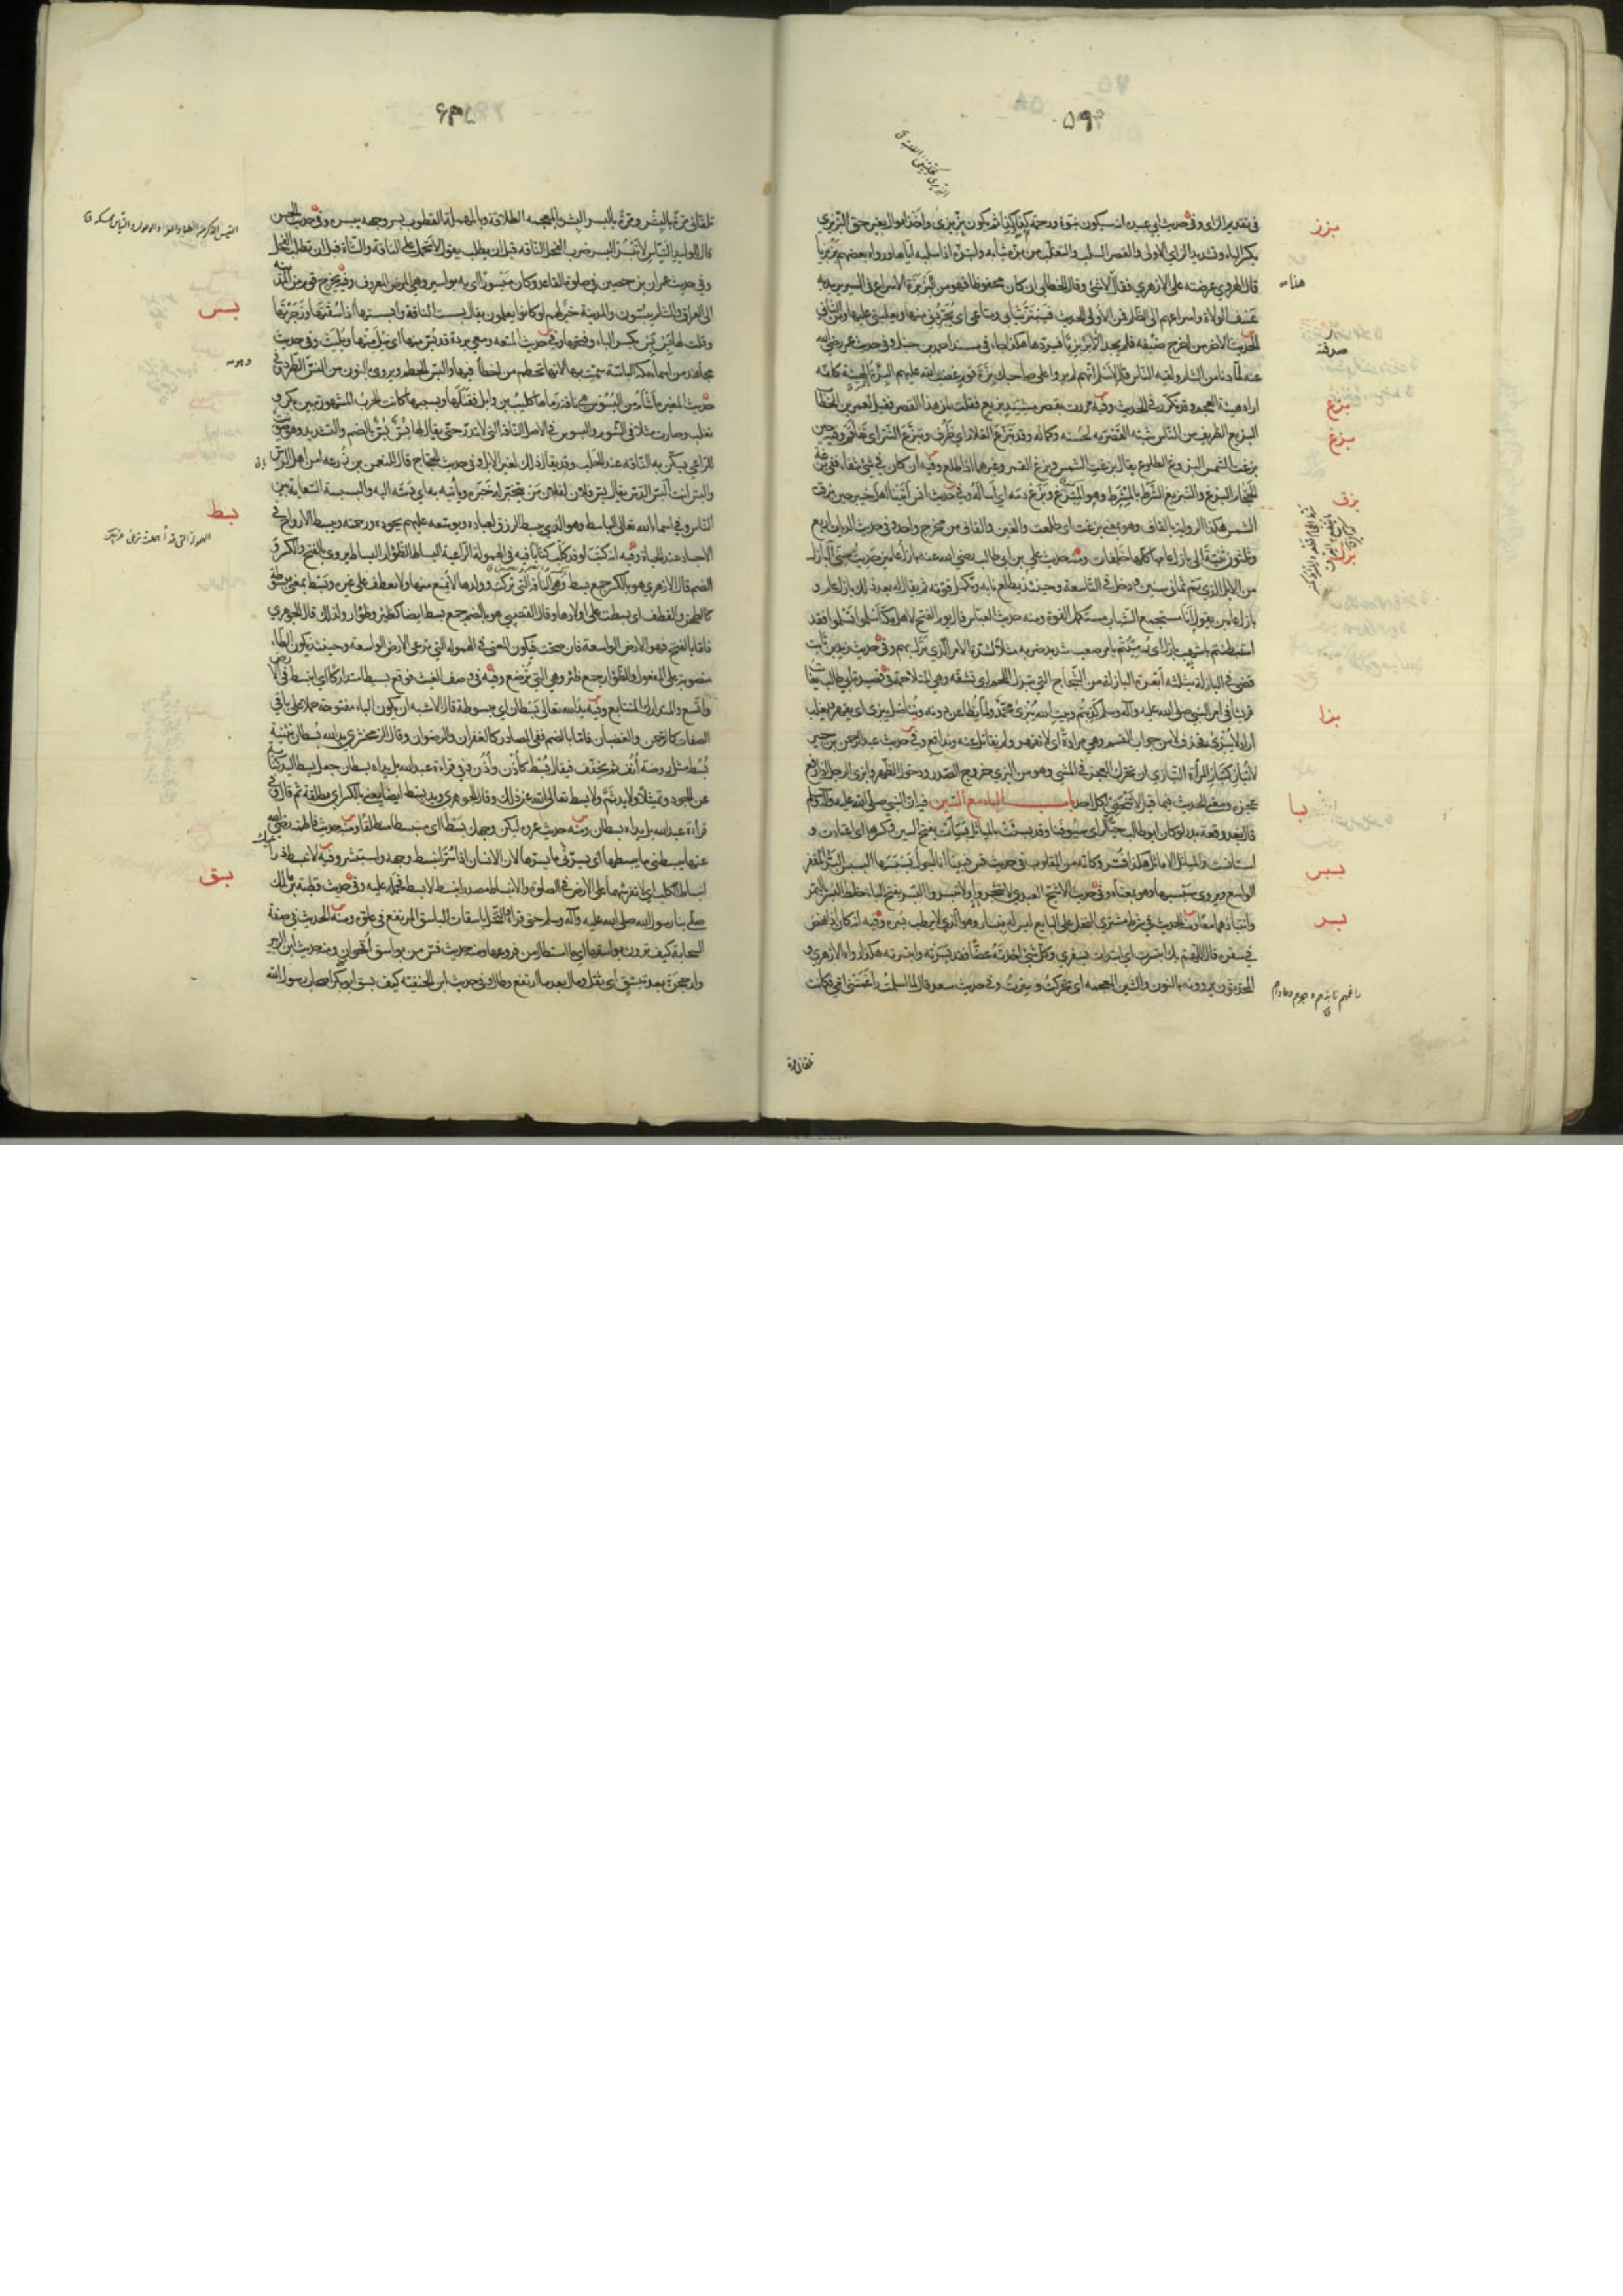 ۵۹
بزز
في تقديم الزاي وفي حديث ابي عبيدة انه سيكون نبوة ورحمة ثم كذا وكذا ثم يكون بزيزي واخذ اموال بغير حق البزيزي
بكسر الباء وتشديد الزاي الاولى والقصر السلب والتغلب من بزه ثيابه وابتزه اذا سلبه اياها ورواه بعضهم بزبزيا
قال الهروي عرضته على الازهري فقال هذا لا شيء وقال الخطابي ان كان محفوظا فهو من البزبزة الاسراع في السير يريد به
عسف الولاة واسراعهم الى الظلم فمن الاول الحديث فيبتز ثيابي ومتاعي اي يجردني منها ويغلبني عليها ومن الثاني
الحديث الاخر من اخرج ضيفه فلم يجد الا بزبزيا فيردها هكذا جاء في مسند احمد بن حنبل وفي حديث عمر رضي الله
عنه لما دنا من الشام ولقيه الناس قال لاسلم انهم لم يروا على صاحبك بزة قوم غضب الله عليهم البزة الهيئة كانه
بزع
اراد هيئة العجم وقد تكرر في الحديث وفيه مررت بقصر مشيد بزيع فقلت لمن هذا القصر فقيل لعمر بن الخطاب
بزغ
البزيع الظريف من الناس شبه القصر به لحسنه وكماله وقد تبزع الغلام اي ظرف وتبزع الشر اي تفاقم وفيه حين
بزغت الشمس البزوغ الطلوع يقال بزغت الشمس وبزغ القمر وغيرهما اذا طلع وفيه ان كان في شيء شفاء ففي بزغة
بزق
الحجام البزغ والتبزيغ الشرط بالمشرط وهو المبزغ وبزغ دمه اي اساله وفي حديث انس اتينا اهل خيبر حين بزقت
الشمس هكذا الرواية بالقاف وهو بمعنى بزغت اي طلعت والغين والقاف من مخرج واحد وفي حديث الديات اربع
بزل
وثلثون ثنية الى بازل عامها كلها خلفات ومنه حديث علي بن ابي طالب رضي الله عنه بازل عامين حديث سني البازل
من الابل الذي يتم ثماني سنين ودخل في التاسعة وحينئذ يطلع نابه وتكمل قوته ثم يقال له بعد ذلك بازل عام و
بازل عامين يقول انا مستجمع الشباب مستكمل القوة ومنه حديث العباس قال يوم الفتح لاهل مكة اسلموا تسلموا فقد
استبطنتم باشهب بازل اي رميتم بامر صعب شديد ضربه مثلا لشدة الامر الذي نزل بهم وفي حديث زيد بن ثابت
قضى في البازلة بثلثة ابعرة البازلة من الشجاج التي تبزل اللحم اي تشقه وهي المتلاحمة في قصيدة ابي طالب يعاتب
بزا
قريشا في امر النبي صلى الله عليه وآله وسلم كذبتم وبيت الله يبزى محمد ولما نطاعن دونه ونناضل يبزى اي يقهر ويغلب
اراد لا يبزى فحذف لا من جواب القسم وهي مرادة اي لا يقهر ولم نقاتل عنه وندافع وفي حديث عبد الرحمن بن جبير
لا تباز كتباز المرأة التبازي ان تحرك العجز في المشي وهو من البزى خروج الصدر ودخول الظهر وابزى الرجل اذا رفع
بسا
عجزه ومعنى الحديث فيما قيل لا تنحن لكل احد باب الباء مع السين فيه ان النبي صلى الله عليه وآله وسلم
قال بعد وقعة بدر لو كان ابو طالب حيا لرأى سيوفنا وقد بسئت بالمياثل بسأت بفتح السين وكسرها اي اعتادت و
استانست والمياثل الاماثل هكذا فسر وكانه من المقلوب
بسر
الواسع ويروى سنبسبها وهو بمعناه وفي حديث الاشج العبدي لا تثجروا ولا تبسروا البسر بفتح الباء خلط البسر بالتمر
وانتباذهما معا ومنه الحديث في شرط مشتري النخل على البايع ليس له مبسار وهو الذي لا يرطب بسره وفيه انه كان اذا نهض
في سفره قال اللهم بك ابتسرت اي ابتدأت بسفري وكل شيء اخذته غضا فقد بسرته وابتسرته هكذا رواه الازهري و
المحدثون يروونه بالنون والشين المعجمة اي تحركت وسرت وفي حديث سعد قال لما اسلمت راغمتني امي فكانت
تلقاني مرة
تلقاني مرة بالبشر ومرة بالبسر البشر بالمعجمة الطلاقة وبالمهملة القطوب بسر وجهه يبسره وفي حديث الحسن
قال للوليد التياس لا تبسر البسر ضرب الفحل الناقة قبل ان يطلب يقول لا تحمل على الناقة والشاة قبل ان تطلب الفحل
وفي حديث عمران بن حصين في صلوة القاعد وكان مبسورا اي به بواسير وهي المرض المعروف وفيه يخرج قوم من المدينة
بسس
الى العراق والشام يبسون والمدينة خير لهم لو كانوا يعلمون يقال بسست الناقة وابسستها اذا سقتها وزجرتها
وقلت لها بس بس بكسر الباء وفتحها وفي حديث المتعة ومعي بردة قد بس منها اي نيل منها وبليت وفي حديث
مجاهد من اسماء مكة الباسة سميت بها لانها تحطم من اخطأ فيها والبس الحطم ويروى بالنون من النس الطرد وفي
حديث المغيرة اشأم من البسوس هي ناقة رماها كليب بن وايل فقتلها وبسببها كانت الحرب المشهورة بين بكر و
تغلب وصارت مثلا في الشوم والبسوس في الاصل الناقة التي لا تدر حتى يقال لها بس بس بالضم والتشديد وهو صويت
للراعي يسكن به الناقة عند الحلب وقد يقال ذلك لغير الابل وفي حديث الحجاج قال للنعمن بن زرعة امن اهل الرس
والبس انت البس الدس يقال بس فلان لفلان من يتخبر له خبره ويأتيه به اي دسه اليه والبسبسة السعاية بين
بسط
الناس وفي اسماء الله تعالى الباسط وهو الذي يبسط الرزق لعباده ويوسعه عليهم بجوده ورحمته ويبسط الارواح في
الاجساد عند الحياة وفيه انه كتب لوفد كلب كتابا فيه في الهمولة الراعية البساط الظؤار البساط يروى بالفتح والكسر و
الضم قال الازهري هو بالكسر جمع بسط وهي الناقة التي تركت وولدها لا يمنع منها ولا تعطف على غيره وبسط بمعنى مبسوط
كالطحن والقطف اي بسطت على اولادها وقال القتيبي هو بالضم جمع بسط ايضا كظئر وظؤار ولذلك قال الجوهري
فاما بالفتح فهو الارض الواسعة فان صحت فيكون المعنى في الهمولة التي ترعى الارض الواسعة وحينئذ يكون الطاء
منصوبة على المفعول والظؤار جمع ظئر وهي التي ترضع وفيه في وصف الغيث فوقع بسيطا متداركا اي انبسط في الارض
واتسع والمتدارك المتتابع وفيه يد الله تعالى بسطان اي مبسوطة قال الاشبه ان يكون الباء مفتوحة حملا على باقي
الصفات كالرحمن والغضبان فاما بالضم ففي المصادر كالغفران والرضوان وقال الزمخشري يد الله بسطان تثنية
بسط مثل روضة انف ثم يخفف فيقال بسط كاذن واذن وفي قراءة عبد الله بل يداه بسطان جعل بسط اليد كناية
عن الجود وتمثيلا ولا يد ثم ولا بسط تعالى الله عن ذلك وقال الجوهري ويد بسط ايضا يعني بالكسر اي مطلقة ثم قال وفي
قراءة عبد الله بل يداه بسطان ومنه حديث عروة ليكن وجهك بسطا اي منبسطا منطلقا ومنه حديث فاطمة رضي الله
عنها يبسطني ما يبسطها اي يسرني ما يسرها لان الانسان اذا سر انبسط وجهه واستبشر وفيه لا تبسط ذراعيك
بسق
انبساط الكلب اي لا تفرشهما على الارض في الصلوة والانبساط مصدر انبسط لا بسط فحمله عليه وفي حديث قطبة بن مالك
صلى بنا رسول الله صلى الله عليه وآله وسلم حتى قرأ والنخل باسقات الباسق المرتفع في علوه ومنه الحديث في صفة
السحابة كيف ترون بواسقها اي ما استطال من فروعها ومنه حديث قس من بواسق اقحوان ومنه حديث ابن الزبير
وارجحن بعد تبسق اي ثقل ومال بعد ما ارتفع وطال وفي حديث ابن الحنفية كيف بسق ابو بكر اصحاب رسول الله